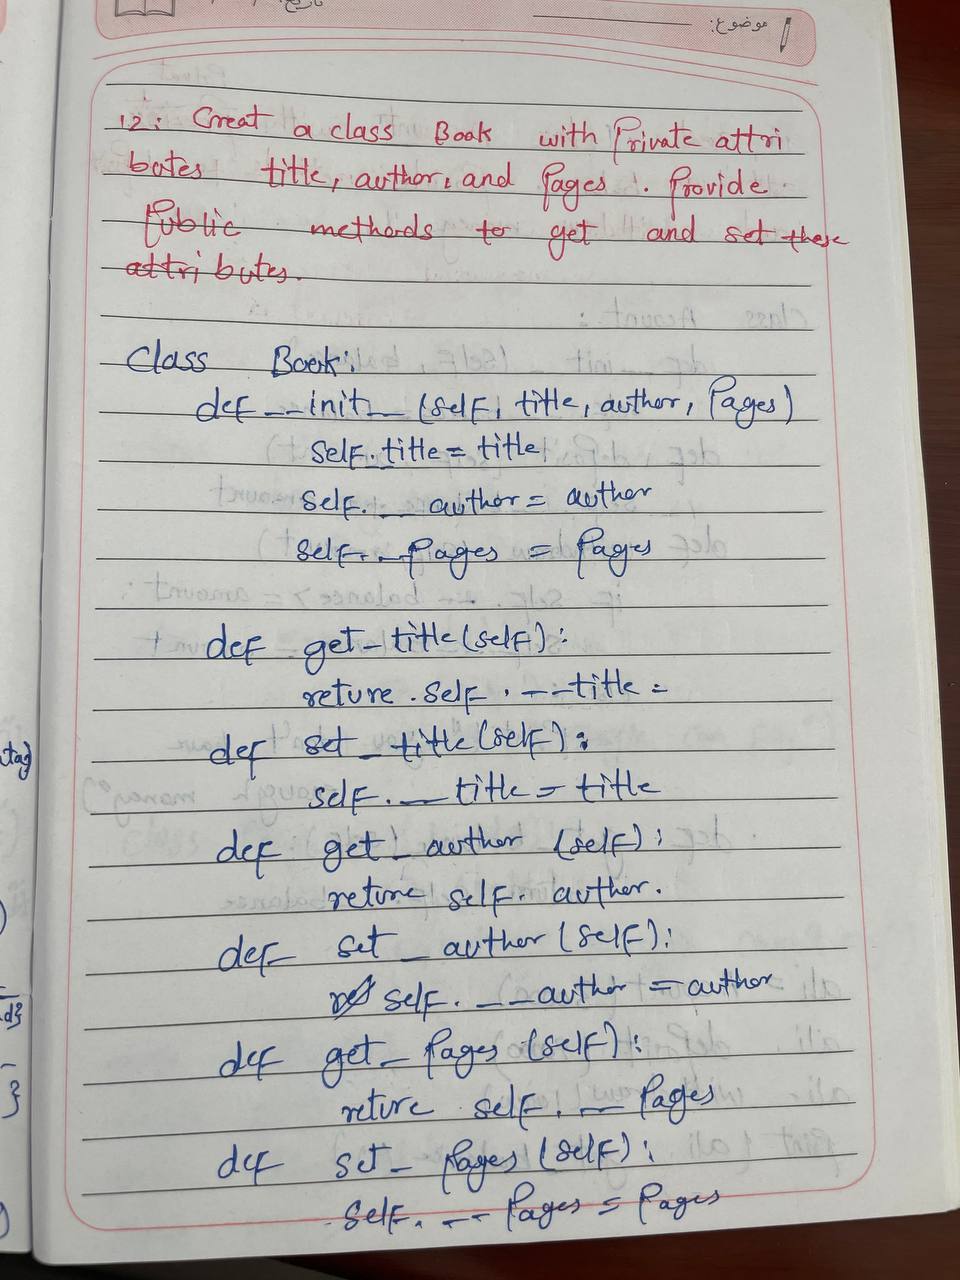 تاریخ: / /
موضوع:
12: Creat a class Book with Private attri
butes title, author, and Pages. Provide
Public methods to get and set these
attributes.
Class Book:
def __init__(self, title, author, Pages)
self.title = title
self.__author = author
self.__Pages = Pages
def get_title(self):
reture.self.__title =
def set_title(self):
self.__title = title
def get_author (self):
reture self.author.
def set_author(self):
self.__author = author
def get_Pages (self):
reture self.__Pages
def set_Pages (self):
self.__Pages = Pages